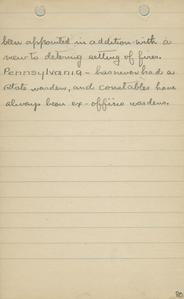 been appointed in addition with a
view to detering setting of fires.
Pennsylvania - has never had a
state warden, and constables have
always been ex-officio wardens.